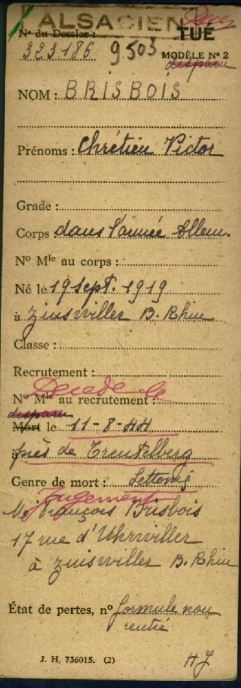 ALSACIEN
N° du Dossier : TUÉ
323186 9503 MODÈLE N° 2
disparu
NOM : BRISBOIS
Prénoms : Chrétien Victor
Grade :
Corps : dans l'armée Allem.
N° Mle au corps :
Né le 19 sept. 1919
à Zinswiller B. Rhin
Classe :
Recrutement :
Décédé le
N° Mle au recrutement :
disparu
Mort le 11-8-44
à près de Treutelberg
Genre de mort : Lettonie
Jugement
Mr François Brisbois
17 rue d'Uhrwiller
à Zinswiller B. Rhin
État de pertes, n° formule non
rentré
J. H. 736015. (2) HJ